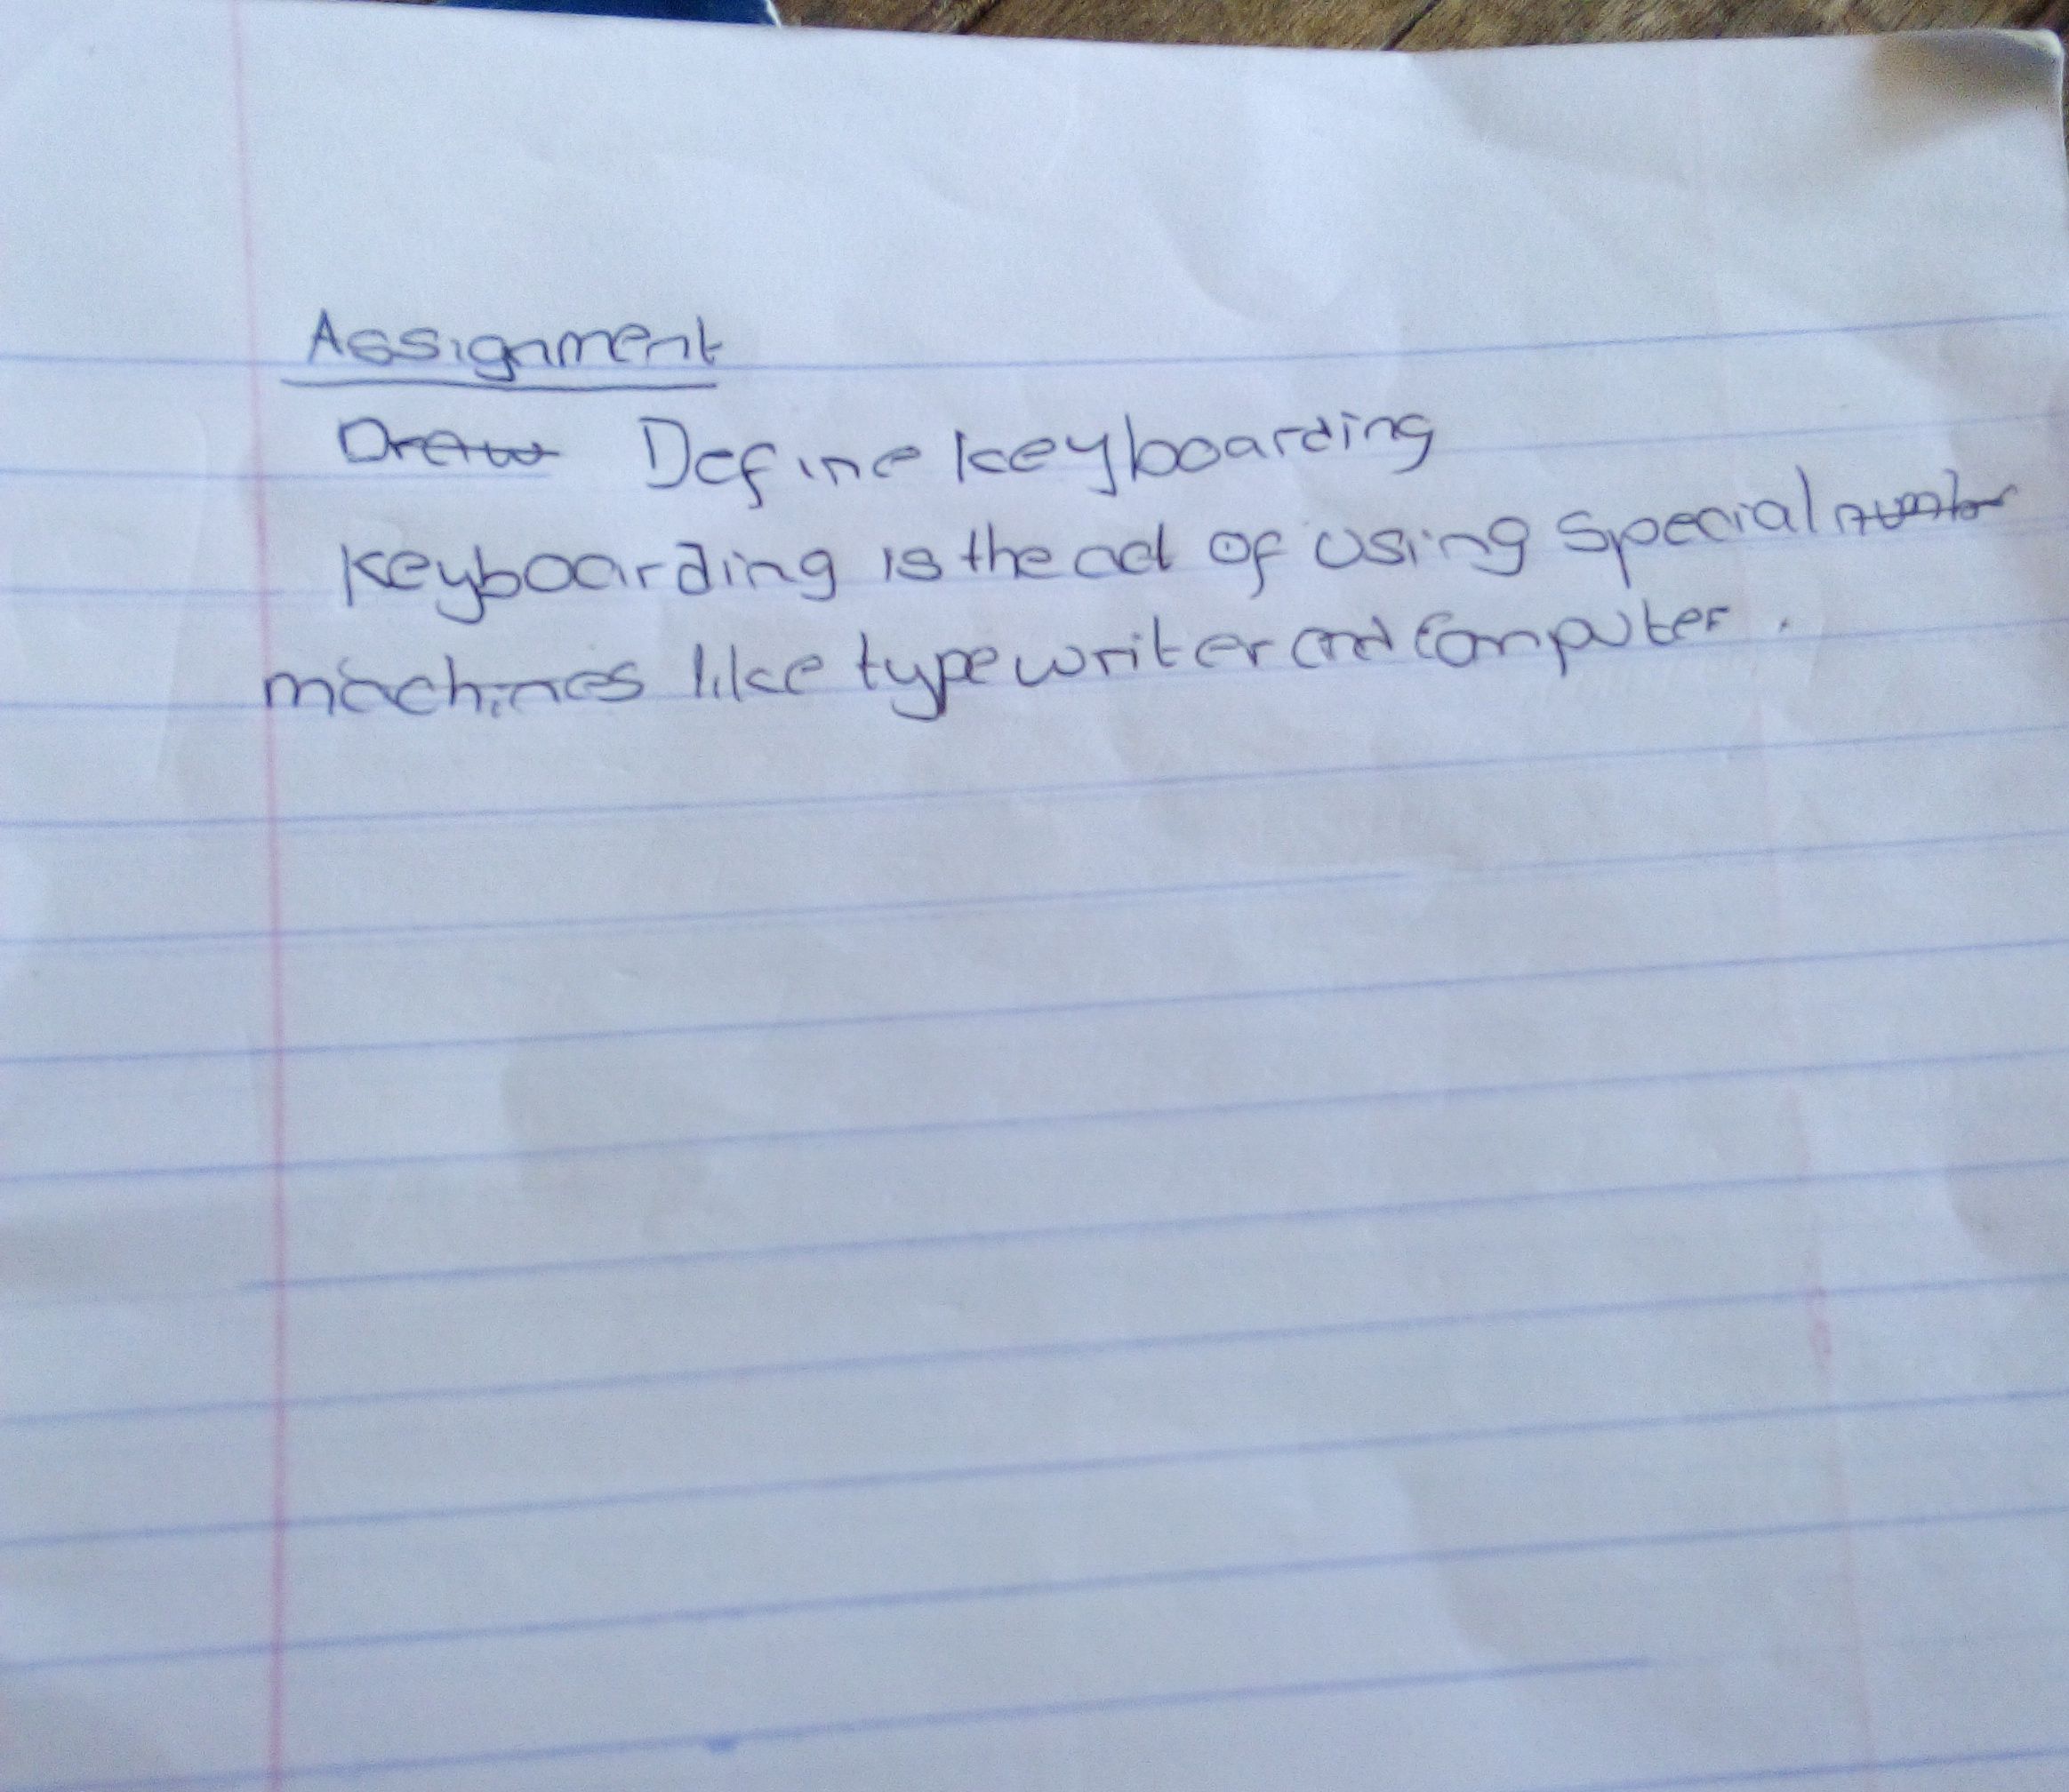 Assignment
Draw Define keyboarding
Keyboarding is the act of using special
machines like typewriter and computer.